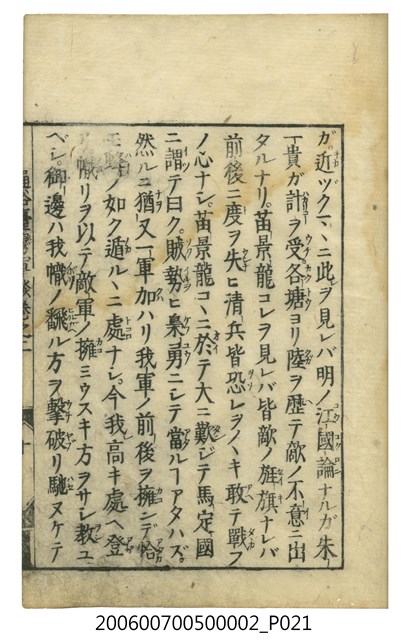 ガ近ツクマヽニ此ヲ見レバ明ノ江國論ナルガ朱一
貴ガ計ヲ受各塘ヨリ陸ヲ歴テ敵ノ不意ニ出
タルナリ。苗景龍コレヲ見レバ皆敵ノ旌旗ナレバ
前後ニ度ヲ失ヒ清兵皆恐レヲノヽキ敢テ戰フ
ノ心ナシ。苗景龍コヽニ於テ大ニ歎ジテ馬定國
ニ謂テ曰ク。賊勢ヒ梟勇ニシテ當ルヿアタハズ。
然ルニ猶又一軍加ハリ我軍ノ前後ヲ擁シデ恰
モ蜂ノ如ク遁ルヽニ處ナシ。今我高キ處ヘ登
リヲ以テ敵軍ノ擁ミウスキ方ヲサレ教ユ
ベシ。御邊ハ我幟ノ飜ル方ヲ撃破リ馳ヌケテ
通俗臺灣軍談巻之二
200600700500002_P021